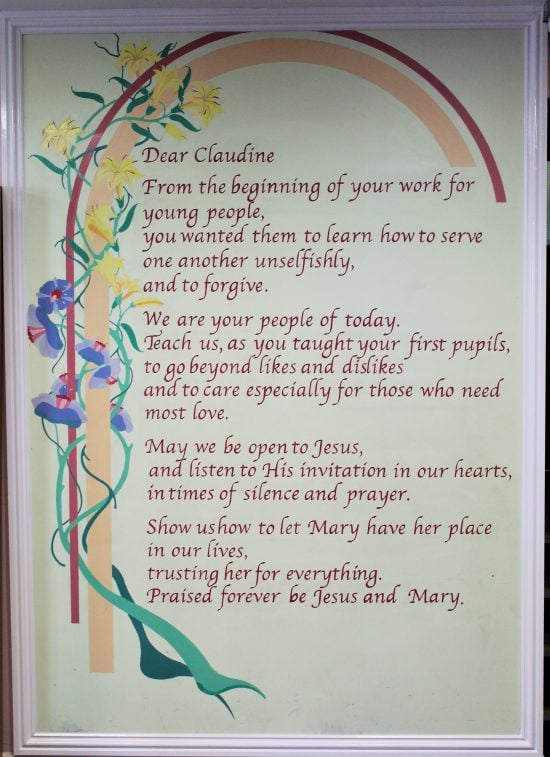 Dear Claudine
From the beginning of your work for
young people,
you wanted them to learn how to serve
one another unselfishly,
and to forgive.
We are your people of today.
Teach us, as you taught your first pupils,
to go beyond likes and dislikes
and to care especially for those who need
most love.
May we be open to Jesus,
and listen to His invitation in our hearts,
in times of silence and prayer.
Show us how to let Mary have her place
in our lives,
trusting her for everything.
Praised forever be Jesus and Mary.